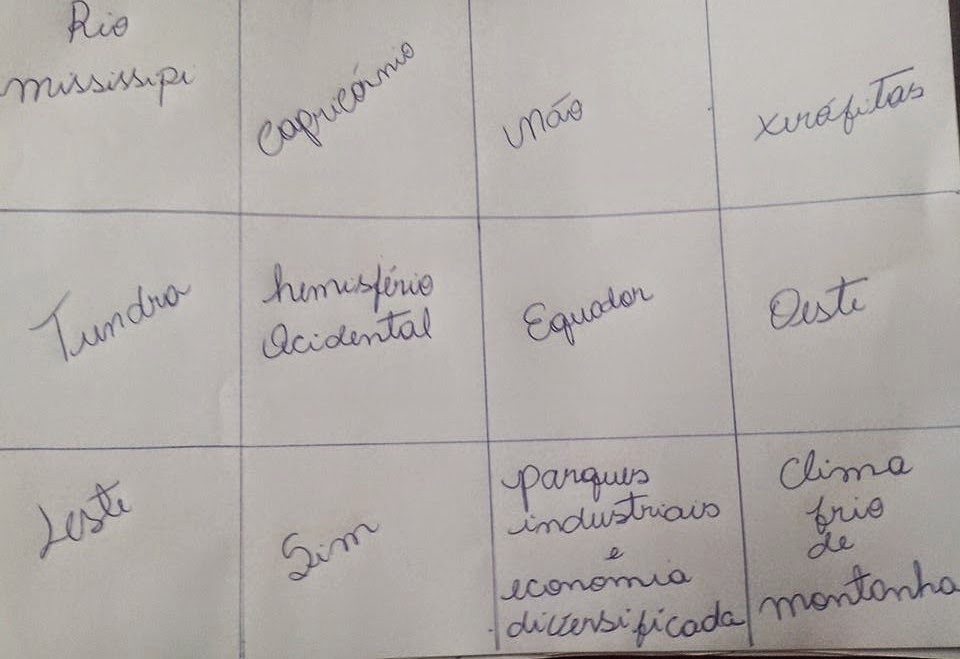 Rio
mississipi
Capricórnio
Não
Xerófitas
Tundra
hemisfério
Ocidental
Equador
Oeste
Leste
Sim
parques
industriais
e
economia
diversificada
Clima
frio
de
montanha